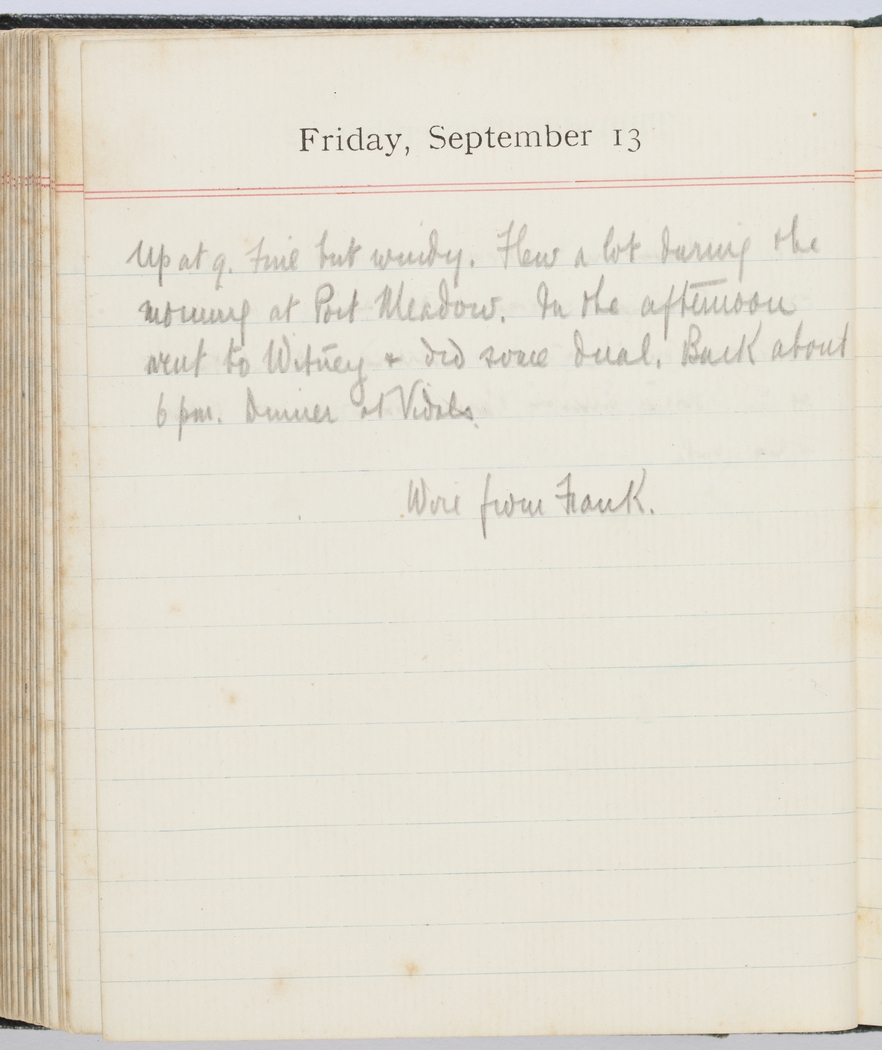 Friday, September 13
Up at 9. Fine but windy. Flew a lot during the
morning at Port Meadow. In the afternoon
went to Witney & did some dual. Back about
6 pm. Dinner at Vidals.
Wire from Frank.